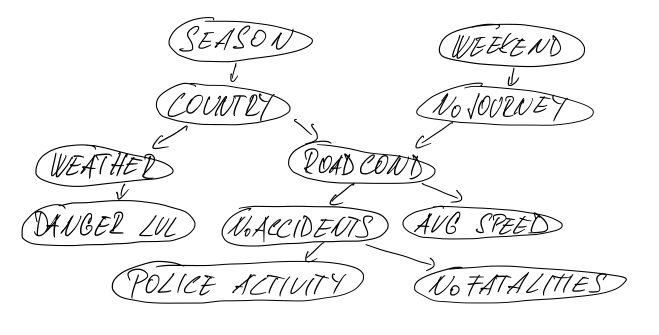 SEASON
WEEKEND
COUNTRY
No JOURNEY
WEATHER
ROAD COND
DANGER LVL
No ACCIDENTS
AVG SPEED
POLICE ACTIVITY
No FATALITIES